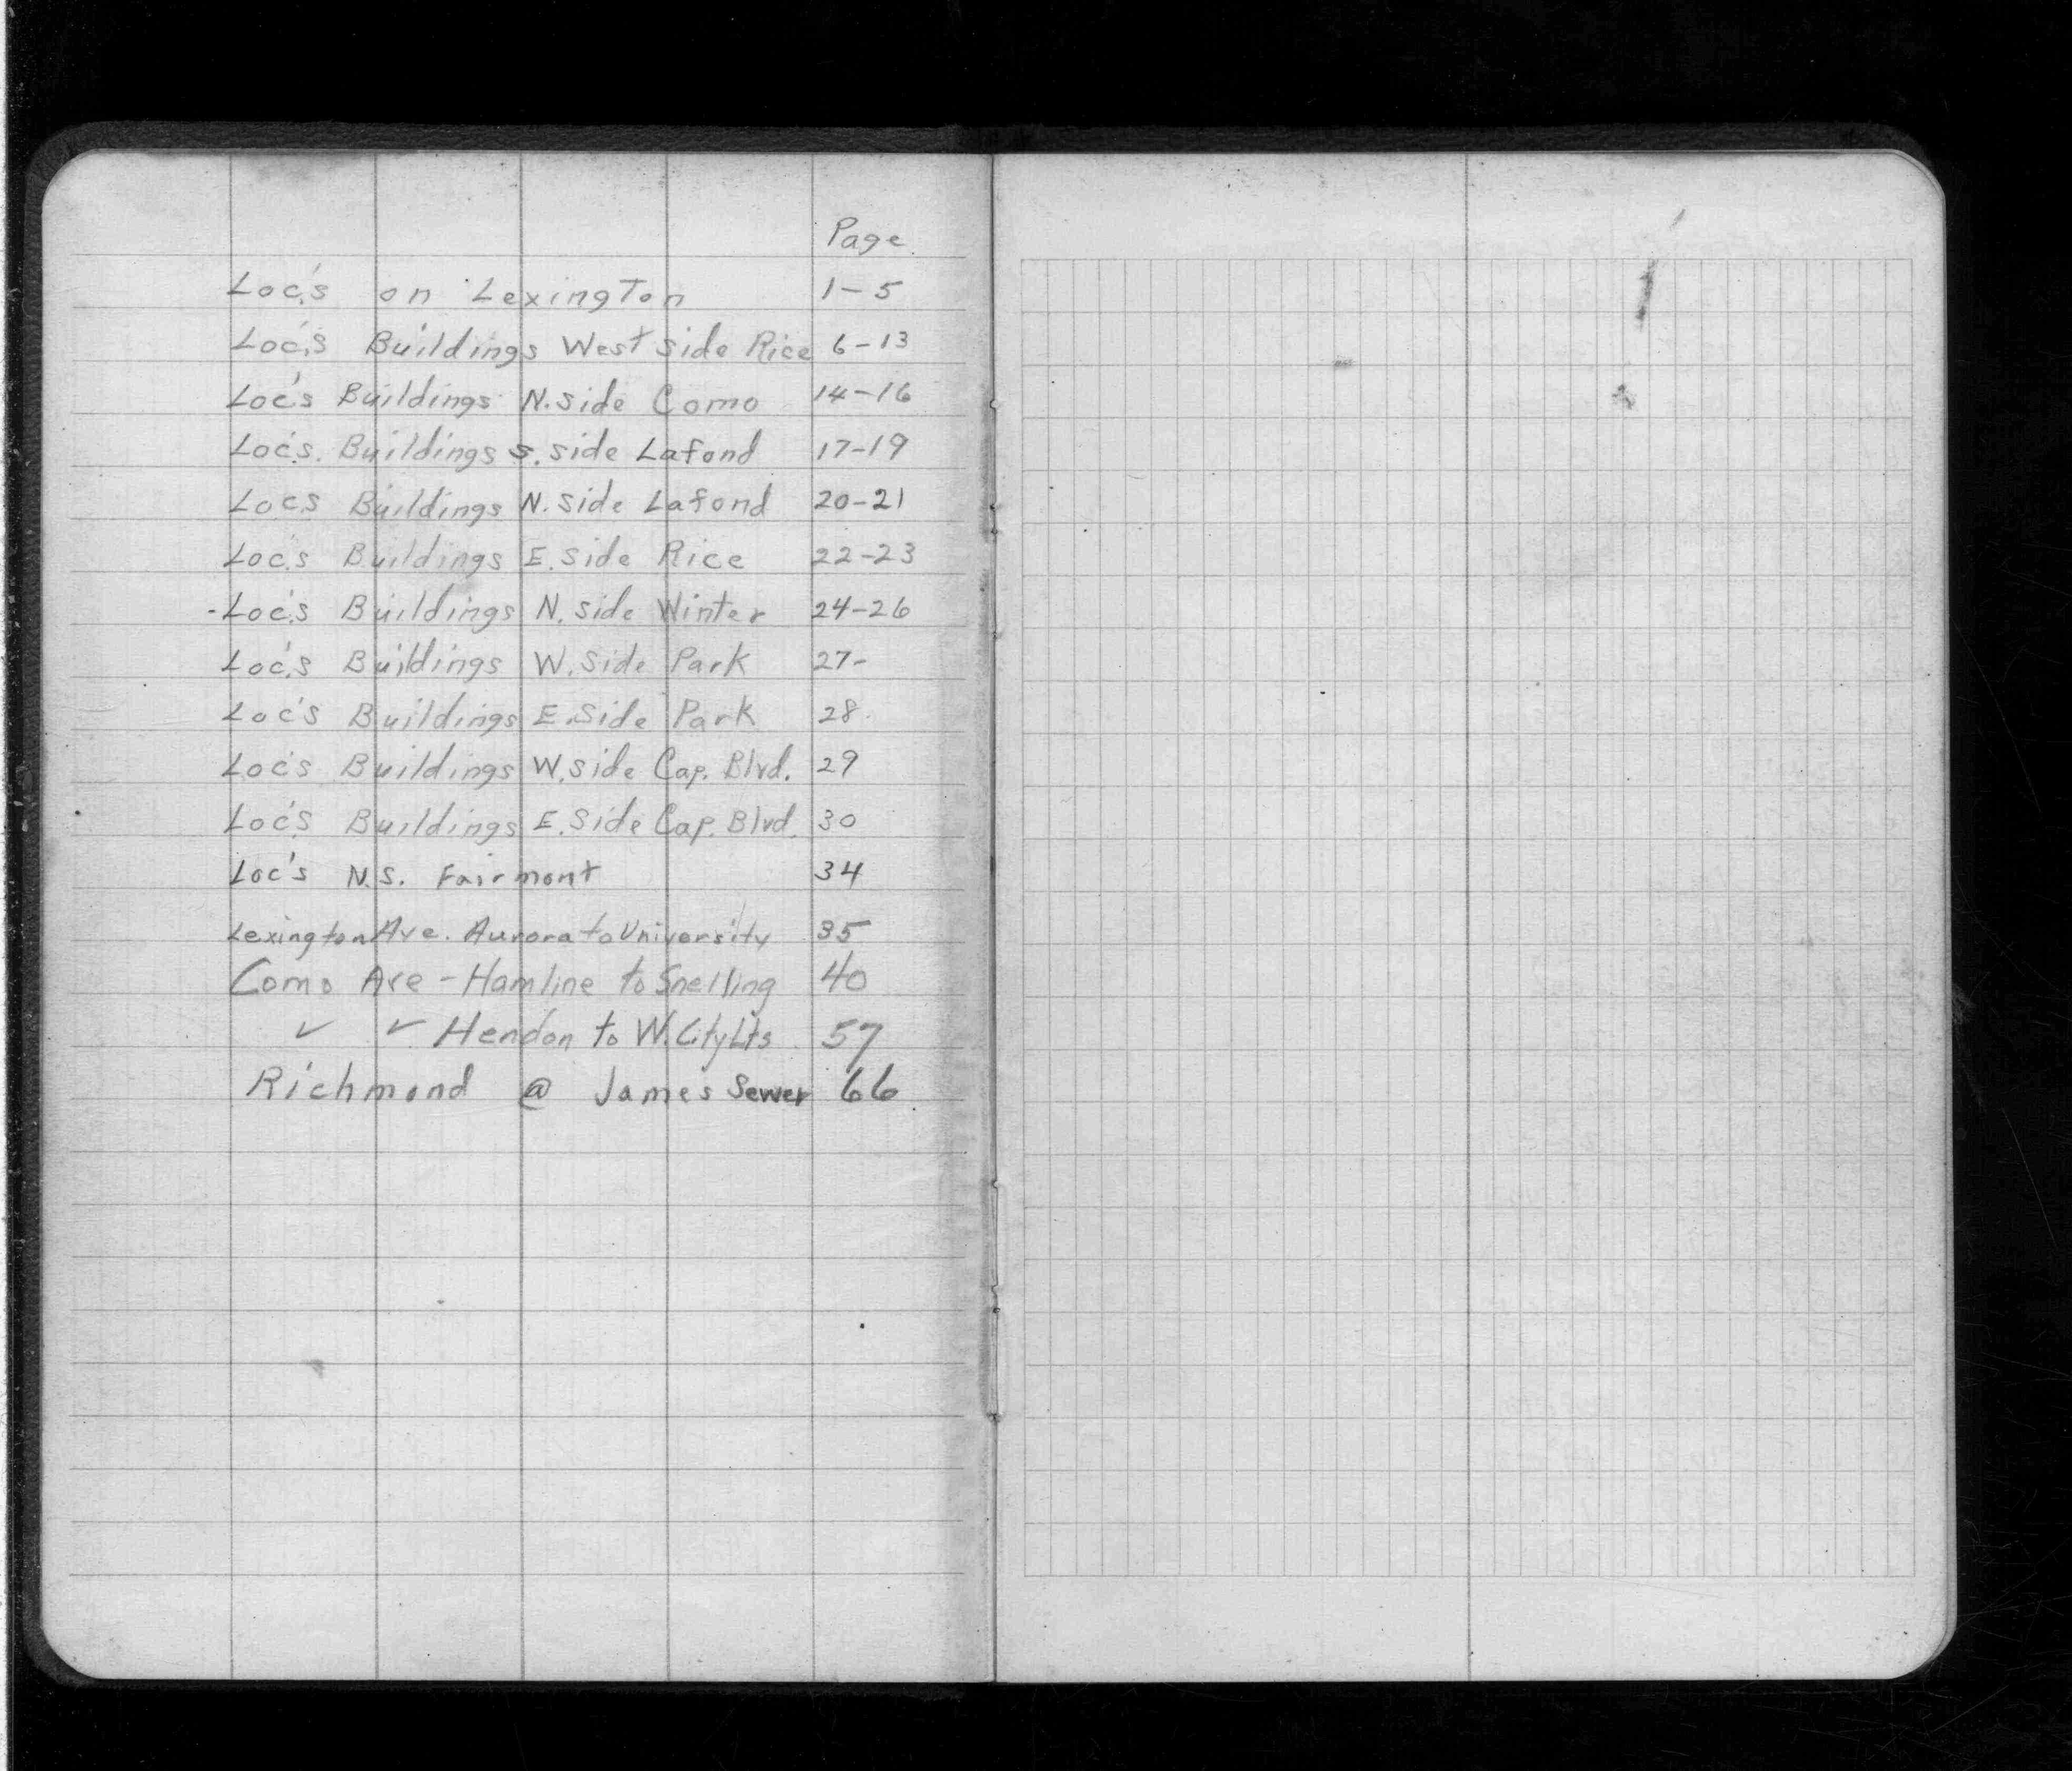 Page.
Loc's on Lexington 1-5
Loc's Buildings West side Rice 6-13
Loc's Buildings N. side Como 14-16
Loc's. Buildings S. side Lafond 17-19
Locs Buildings N. side Lafond 20-21
Loc's Buildings E. side Rice 22-23
-Loc's Buildings N. side Winter 24-26
Loc's Buildings W. Side Park 27-
Loc's Buildings E. Side Park 28.
Loc's Buildings W. side Cap. Blvd. 29
Loc's Buildings E. Side Cap. Blvd. 30
Loc's N.S. Fairmont 34
Lexington Ave. Aurora to University 35
Como Ave - Hamline to Snelling 40
✓ ✓ Hendon to W. City Lts 57
Richmond @ James Sewer 66